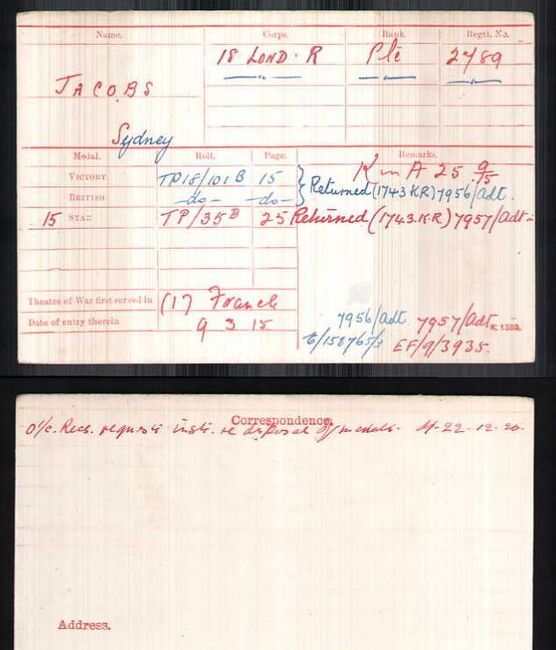 Name. Corps. Rank. Regtl. No.
18 LOND. R Pte 2789
JACOBS
Sydney
Medal. Roll. Page. Remarks.
K in A 25 9/15
VICTORY TP18/101B 15 } Returned (1743 KR) 7956/Adt.
BRITISH -do- -do-
15 STAR TP/35B 25 Returned (1743.KR) 7957/Adt-
Theatre of War first served in (1) France
Date of entry therein 9 3 15
7956/Adt 7957/Adt K 1380.
EF/9/3935.
Correspondence.
O/c. Recs. requests instr. re disposal of medals. 22-12-20.
Address.